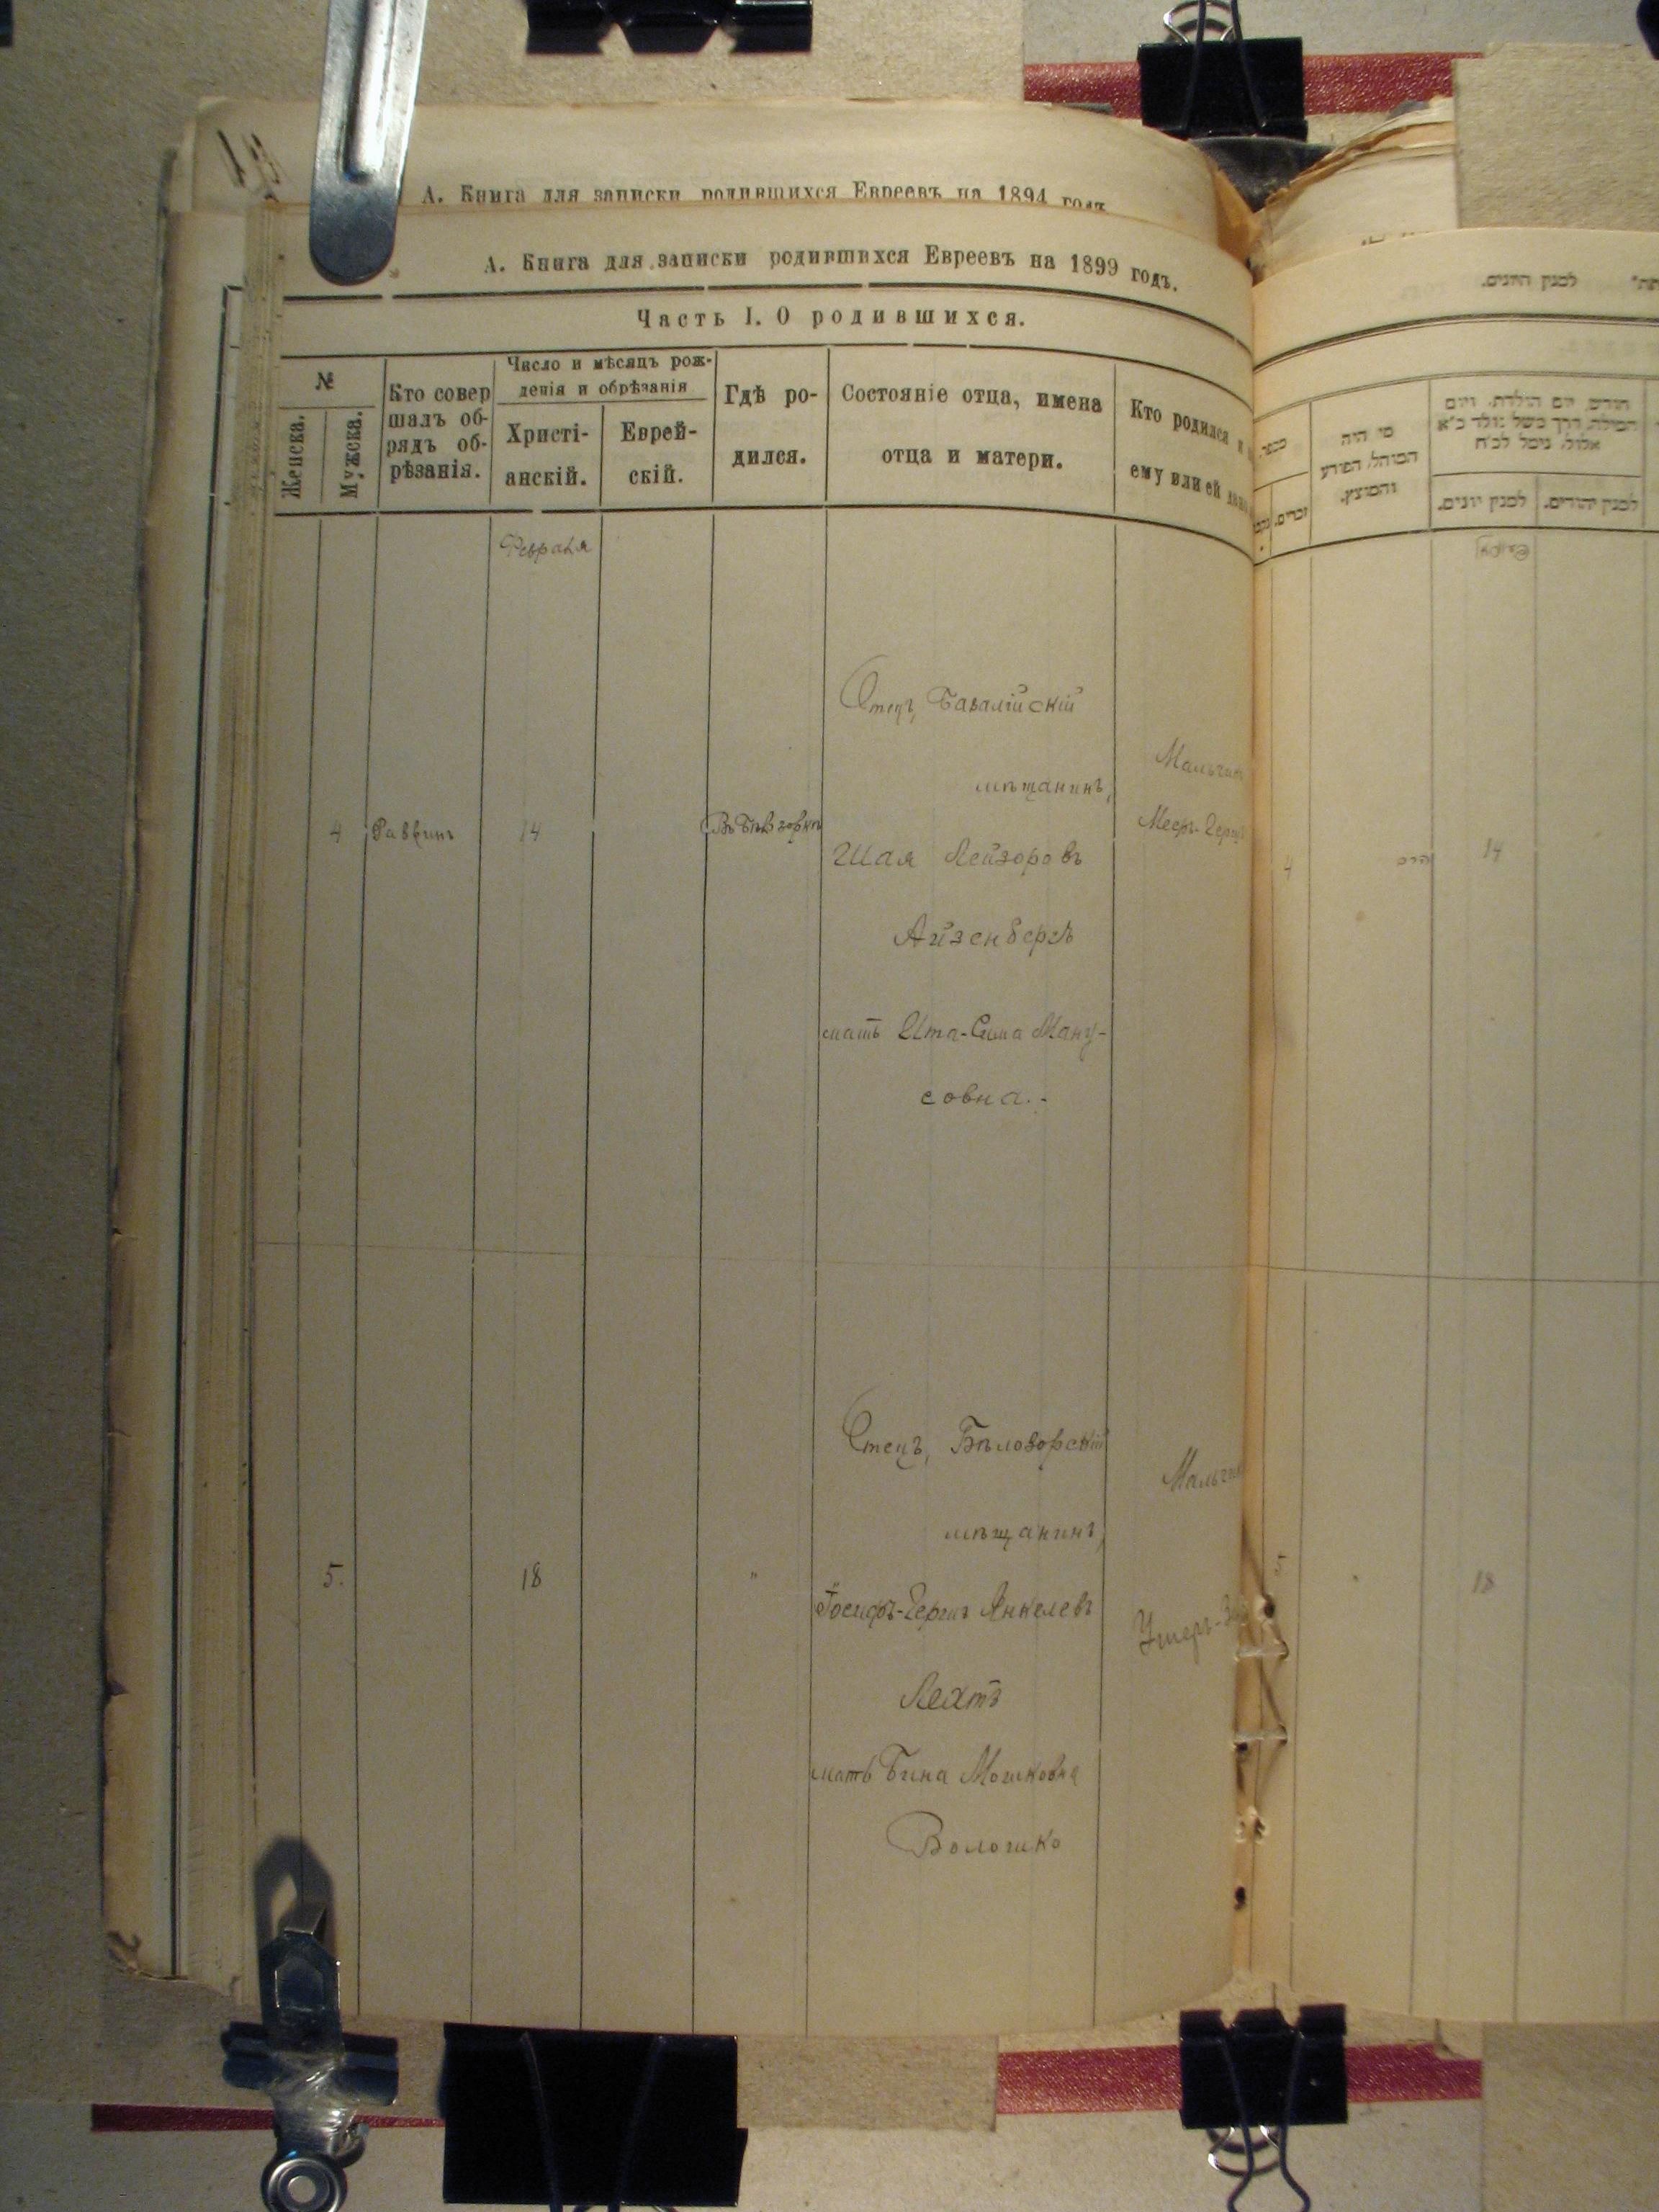 А. Книга для записки родившихся Евреевъ на 1894 годъ
А. Книга для записки родившихся Евреевъ на 1899 годъ.
Часть I. О родившихся.
№
Женска.
Мужска.
Кто совер
шалъ об-
рядъ об-
рѣзанія.
Число и мѣсяцъ рож-
денія и обрѣзанія
Христі-
анскій.
Еврей-
скій.
Гдѣ ро-
дился.
Состояніе отца, имена
отца и матери.
Кто родился и
ему или ей
Февраля
4 Раввинъ 14
Отецъ, Базалійскій
мѣщанинъ,
Шая Лейзоровъ
Айзенбергъ
мать Ита-Сима Ману-
совна.-
Мальчикъ
Мееръ-Герш
5. 18 "
Отецъ, Бѣлозорскій
мѣщанинъ,
Іосифъ-Гершъ Янкелевъ
Лехтъ
мать Бина Мошковна
Волошко
Мальчик
Ушеръ-
למנין היונים.
מי היה
המוהל, הפורע
והמוצץ.
חודש, יום הולדת, ויום
למנין יונים.
למנין יהודים.
זכרים.
4
הרב
14
5
18